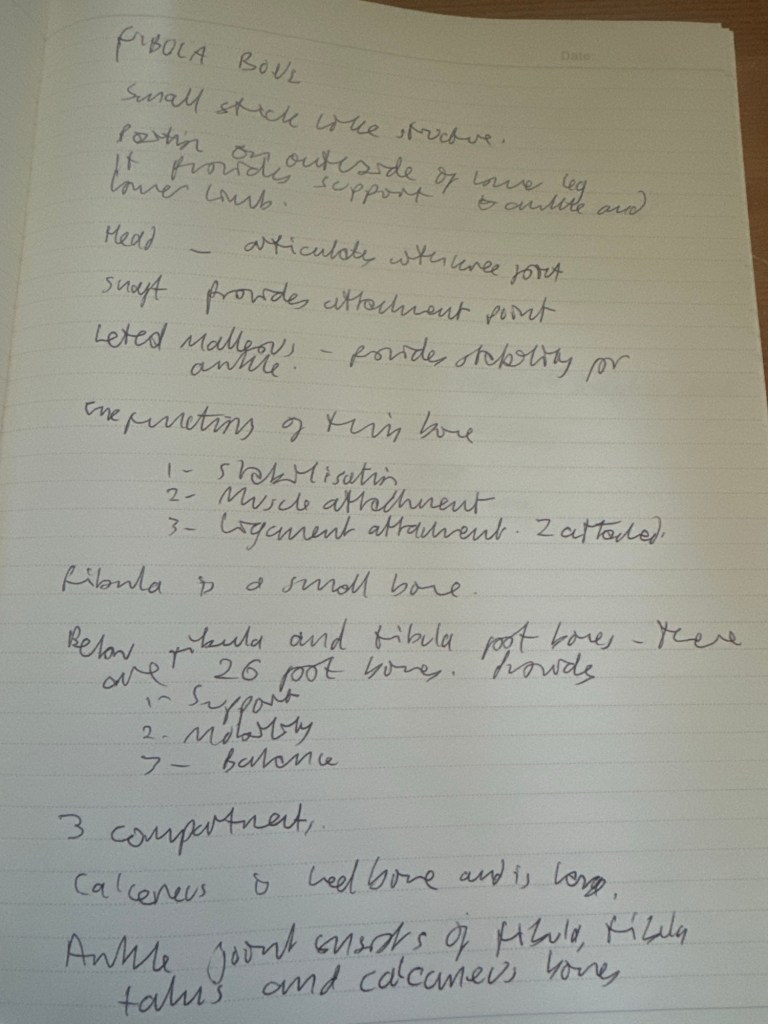 Date:
FIBOLA BONE
Small stick like structure.
Positin on outerside of lowe leg
It provides support to ankle and
lower limb.
Head - articulates with knee joint
Shaft provides attachment point
Malleous - provides stability for
ankle.
functions of this bone
1- Stabilisatin
2- Muscle attachment
3- Ligament attachment. 2 attached.
Fibula is a small bone.
Below fibula and tibula foot bones - there
are 26 foot bones. Provids
1- Support
2. Mobility
3- Balance
3 compartments.
Calceneus is heel bone and is
Ankle joint consists of fibula, tibula
talus and calcaneus bones